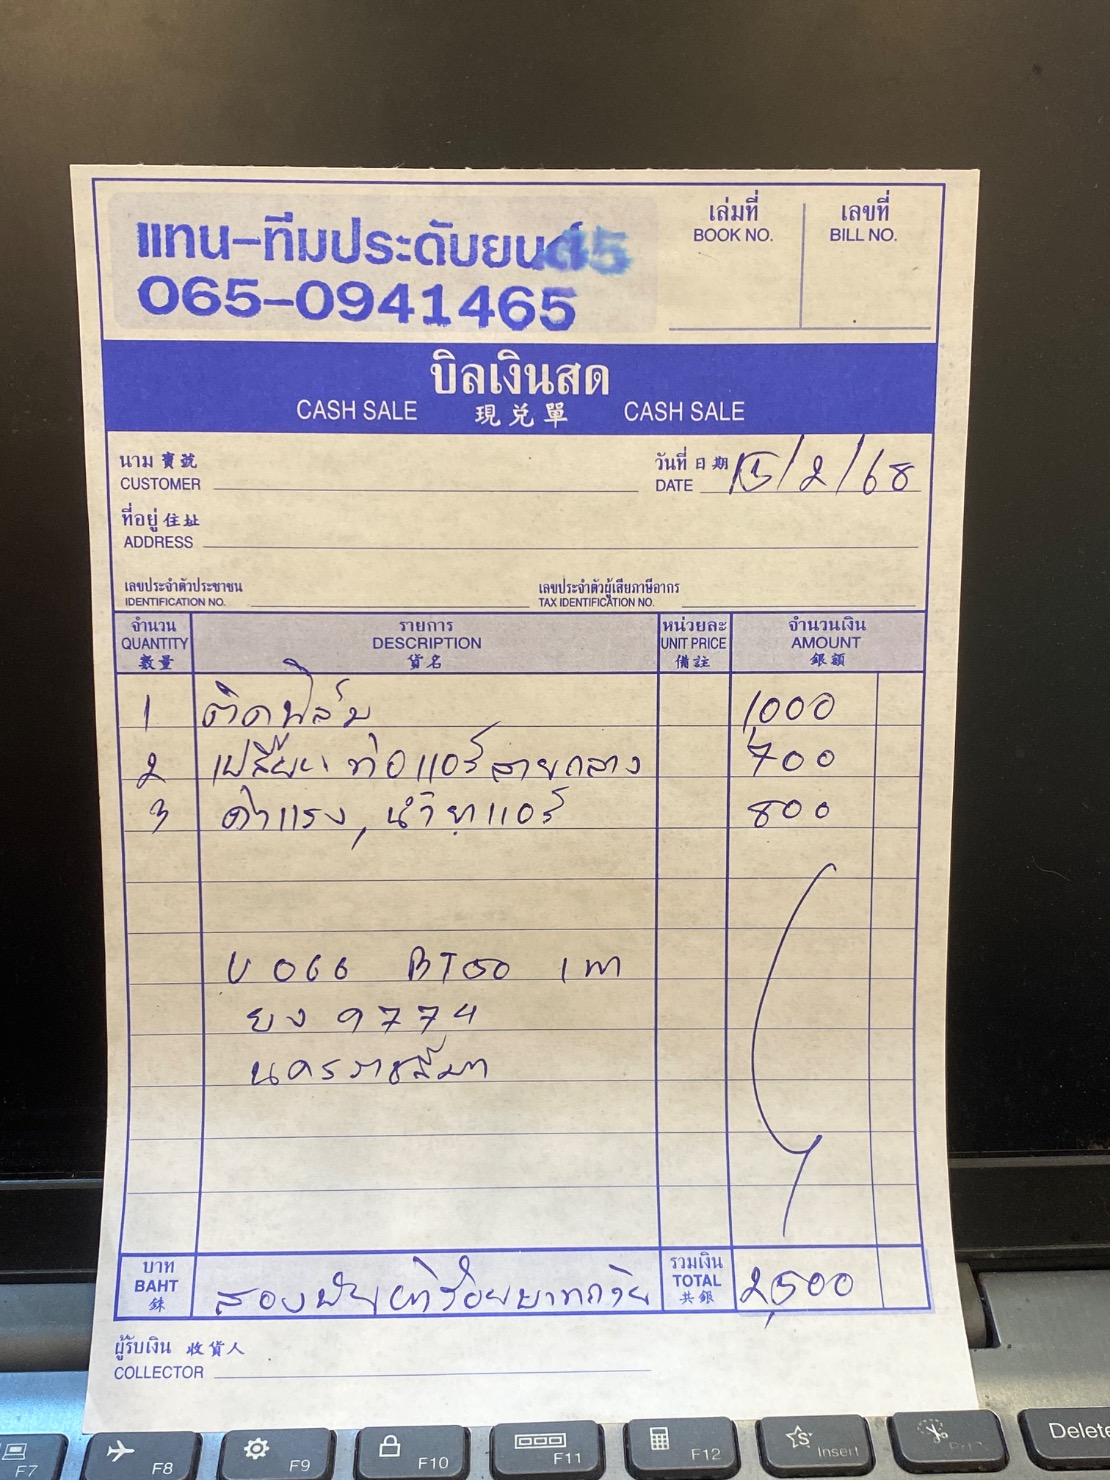 แทน-ทีมประดับยนต์
065-0941465
เล่มที่
BOOK NO.
เลขที่
BILL NO.
บิลเงินสด
CASH SALE 現兑單 CASH SALE
นาม 寶號
CUSTOMER
วันที่ 日期
DATE 15/2/68
ที่อยู่ 住址
ADDRESS
เลขประจำตัวประชาชน
IDENTIFICATION NO.
เลขประจำตัวผู้เสียภาษีอากร
TAX IDENTIFICATION NO.
จำนวน รายการ หน่วยละ จำนวนเงิน
QUANTITY DESCRIPTION UNIT PRICE AMOUNT
數量 貨名 備註 銀額
1 ติดฟิล์ม 1,000
2 เปลี่ยน ท่อแอร์สายกลาง 700
3 ค่าแรง, น้ำยาแอร์ 800
U066 BT50 เทา
ยง 9774
นครราชสีมา
บาท
BAHT
銖
สองพันห้าร้อยบาทถ้วน
รวมเงิน
TOTAL
共銀
2,500
ผู้รับเงิน 收貨人
COLLECTOR
F7 F8 F9 F10 F11 F12 Insert Delete